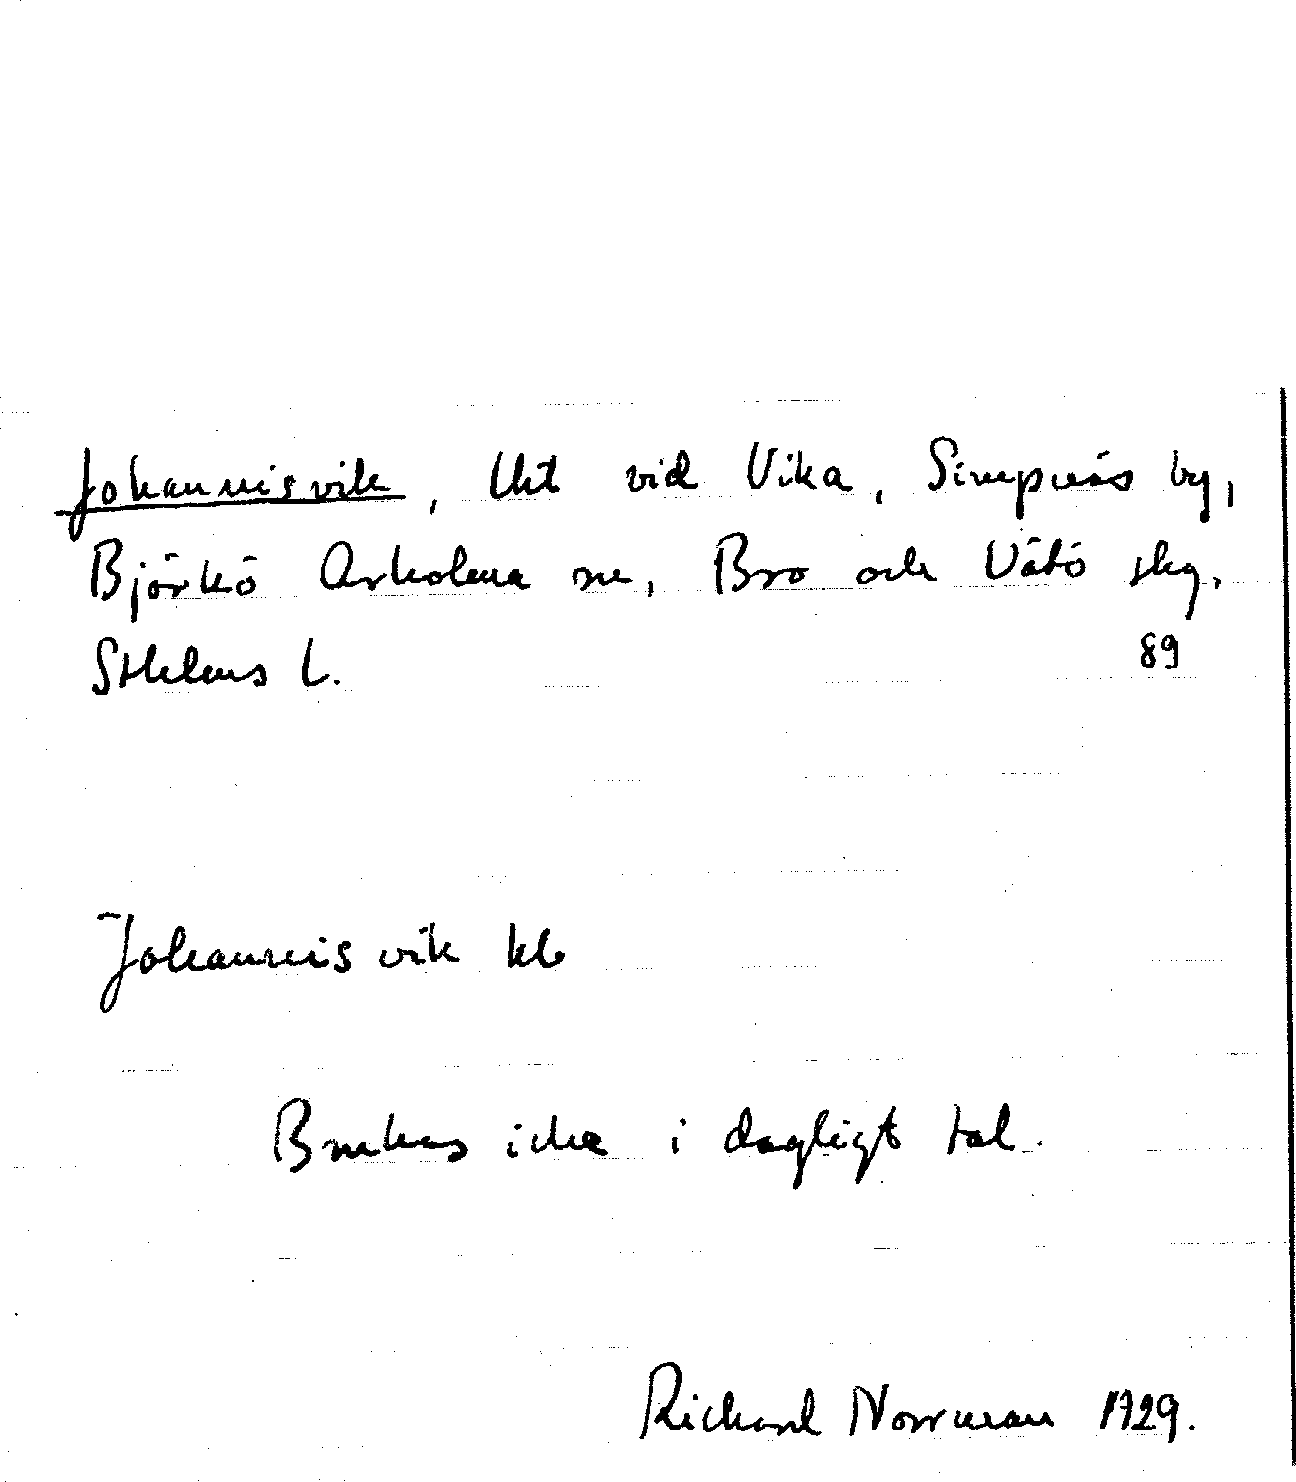 Johannisvik, Utt vid Vika, Simpnäs by,
Björkö Arholma sn, Bro och Vätö skg,
Sthlms L. 89
Johannisvik kb
Brukas icke i dagligt tal.
Richard Norrman 1929.